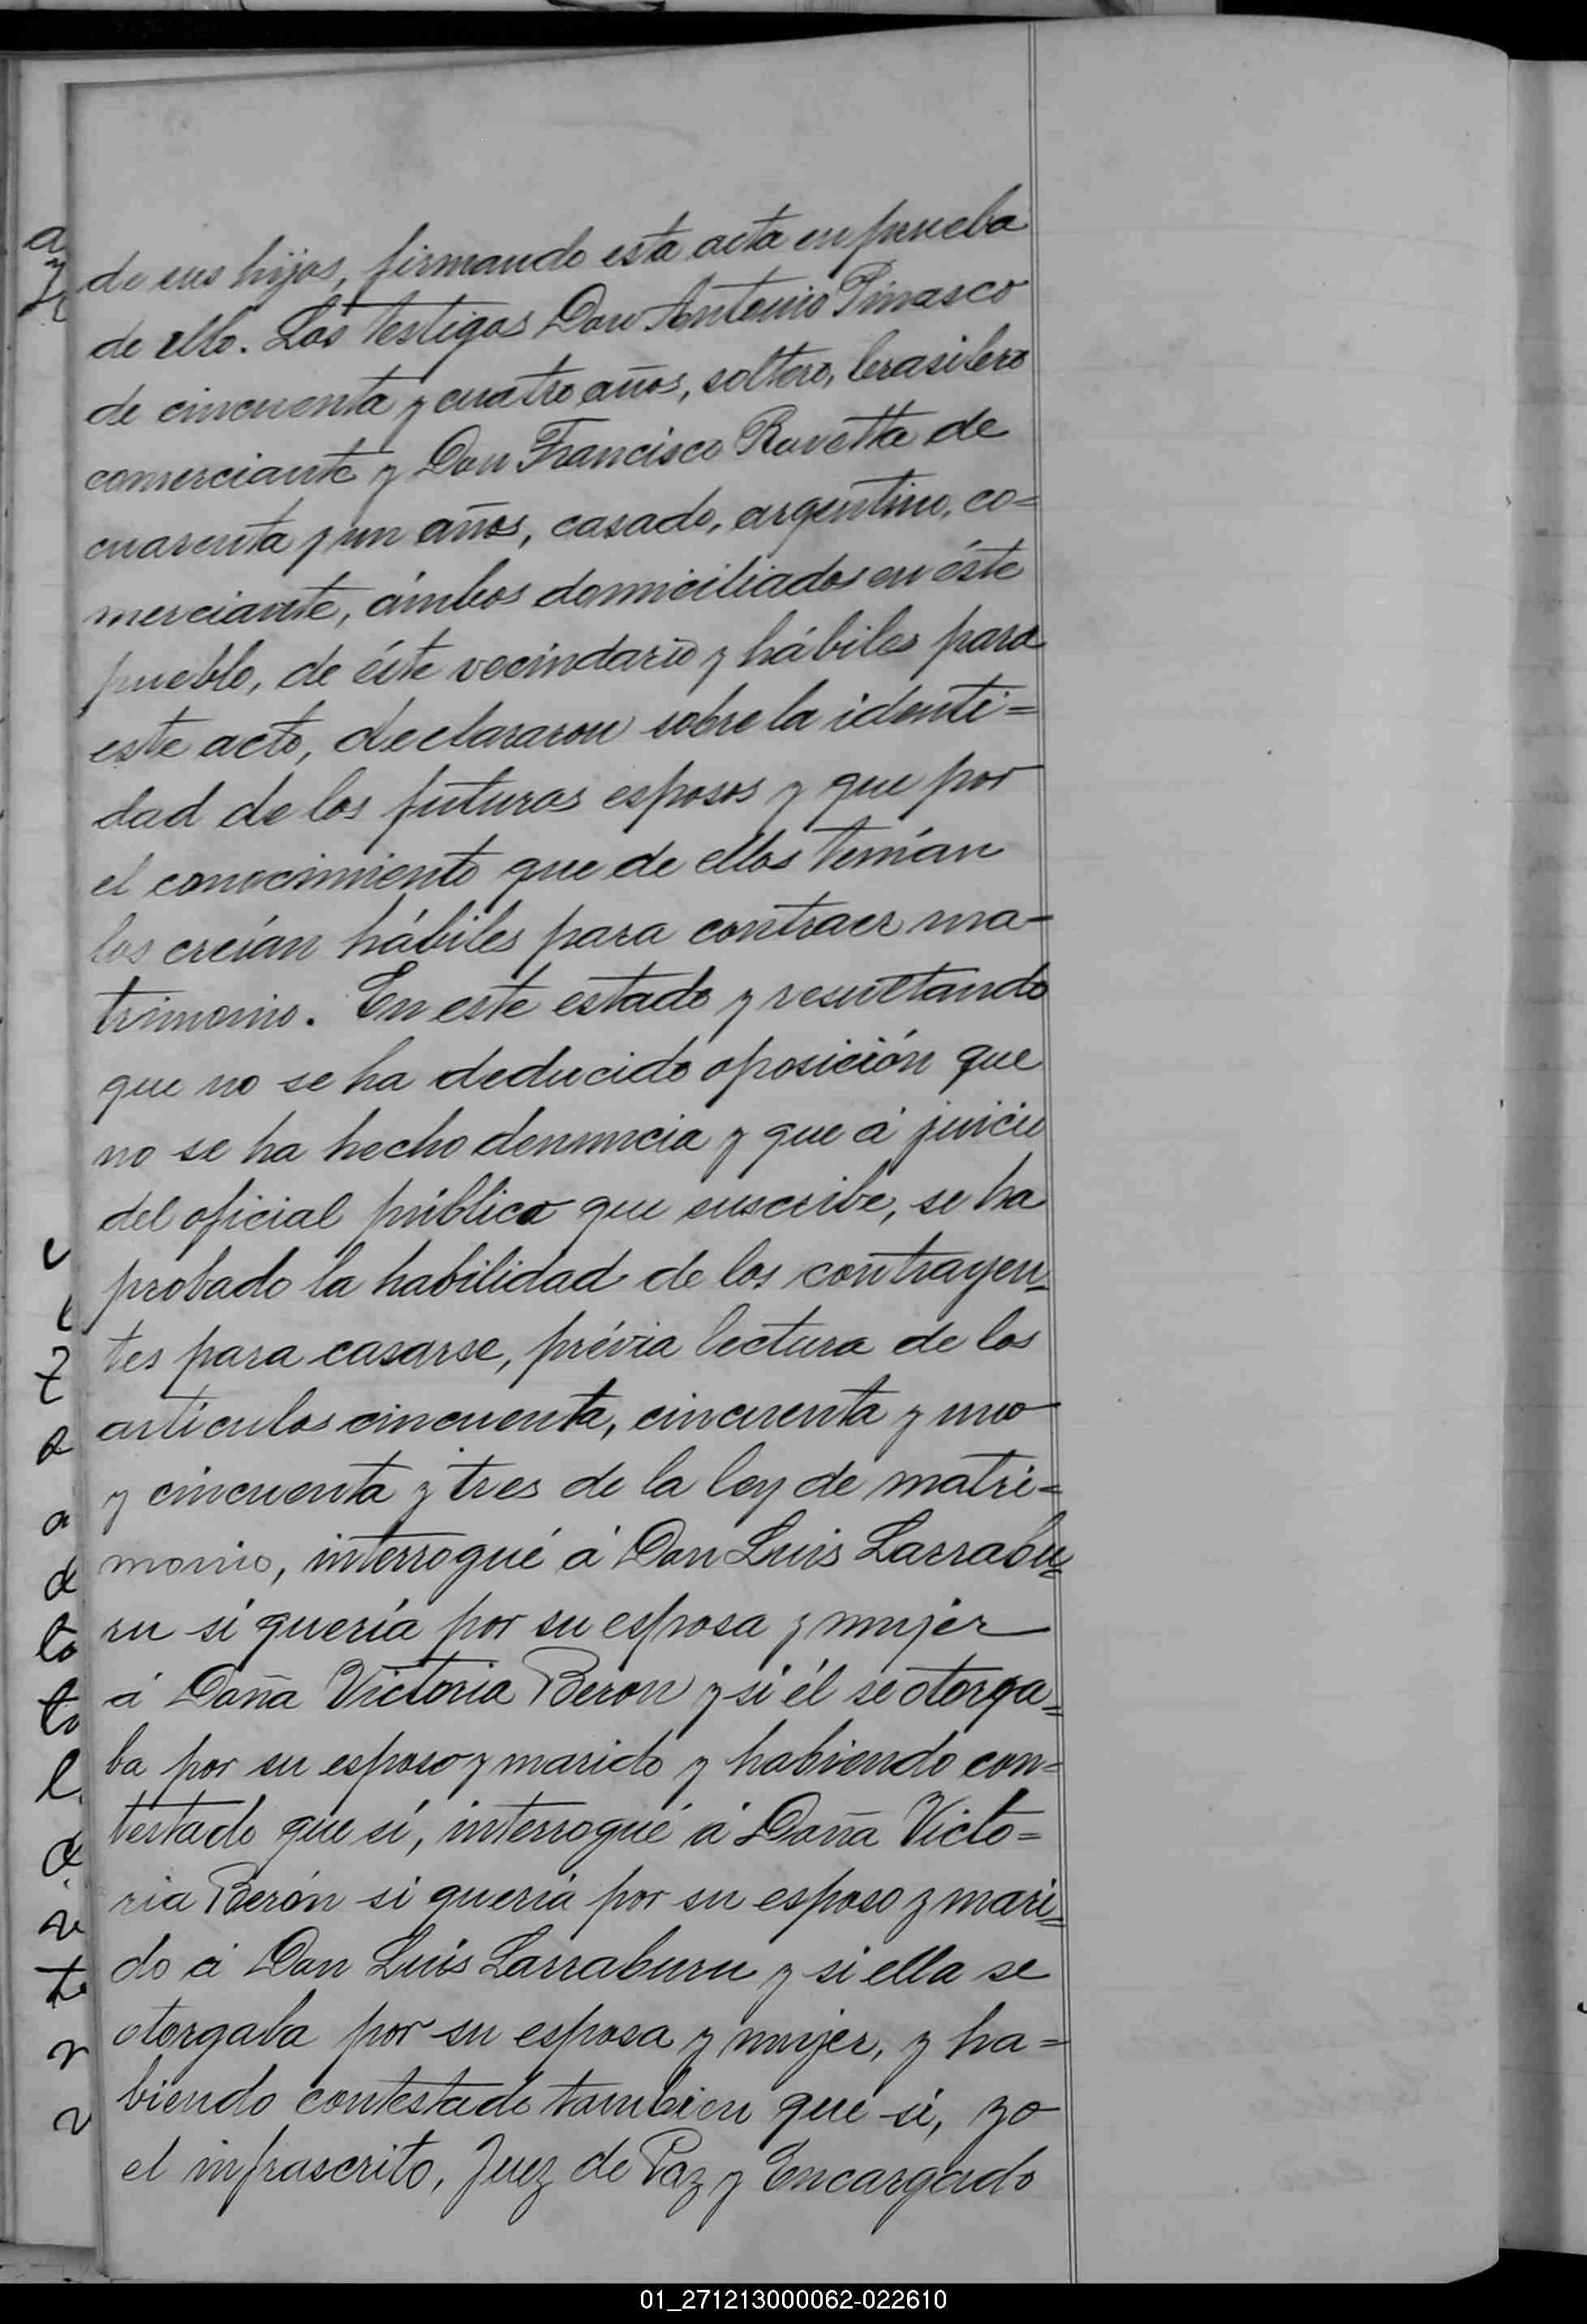 de sus hijos, firmando esta acta en prueba
de ello. Los testigos Don Antonio Pinasco
de cincuenta y cuatro años, soltero, brasilero
comerciante y Don Francisco Rovetta de
cuarenta y un años, casado, argentino, co=
merciante, ámbos domiciliados en éste
pueblo, de éste vecindario y hábiles para
este acto, declararon sobre la identi=
dad de los futuros esposos y que por
el conocimiento que de ellos tenían
los creían hábiles para contraer ma-
trimonio. En este estado y resultando
que no se ha deducido oposición que
no se ha hecho denuncia y que á juicio
del oficial público que suscribe, se ha
probado la habilidad de los contrayen=
tes para casarse, prévia lectura de los
artículos cincuenta, cincuenta y uno
y cincuenta y tres de la ley de matri=
monio, interrogué á Don Luis Larrabu=
ru si quería por su esposa y mujer
á Doña Victoria Beron y si él se otorga=
ba por su esposo y marido y habiendo con=
testado que sí, interrogué á Doña Victo=
ria Berón si quería por su esposo y mari=
do á Don Luis Larraburu y si ella se
otorgaba por su esposa y mujer, y ha=
biendo contestado tambien que sí, yo
el infrascrito, Juez de Paz y Encargado
01_271213000062-022610